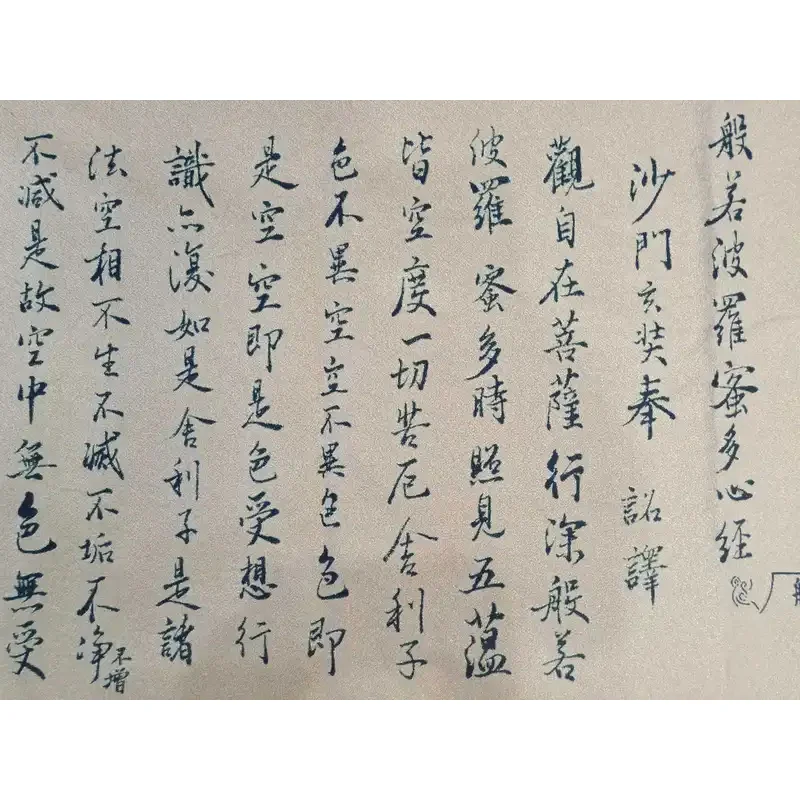 般若波羅蜜多心経
沙門玄奘奉 詔譯
觀自在菩薩行深般若
波羅蜜多時照見五蕴
皆空度一切苦厄舍利子
色不異空空不異色色即
是空空即是色受想行
識亦復如是舍利子是諸
法空相不生不滅不垢不净不增
不减是故空中無色無受